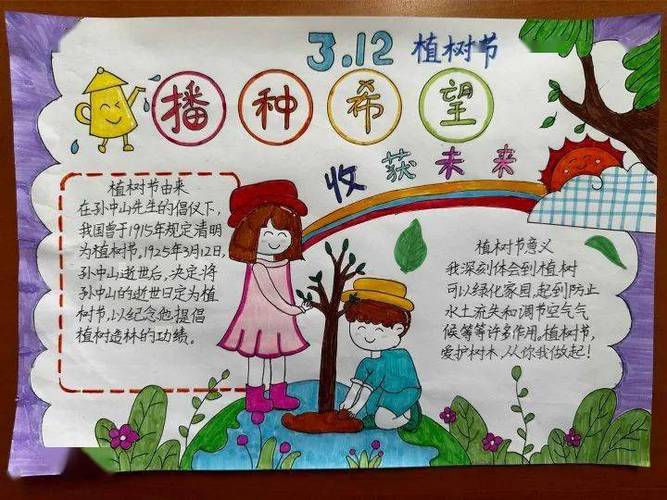 3.12 植树节
播种希望
收获未来
植树节由来
在孙中山先生的倡仪下,
我国曾于1915年规定清明
为植树节,1925年3月12日,
孙中山逝世后,决定将
孙中山的逝世日定为植
树节,以纪念他提倡
植树造林的功绩。
植树节意义
我深刻体会到植树
可以绿化家园,起到防止
水土流失和调节空气气
候等等许多作用。植树节,
爱护树木,从你我做起!